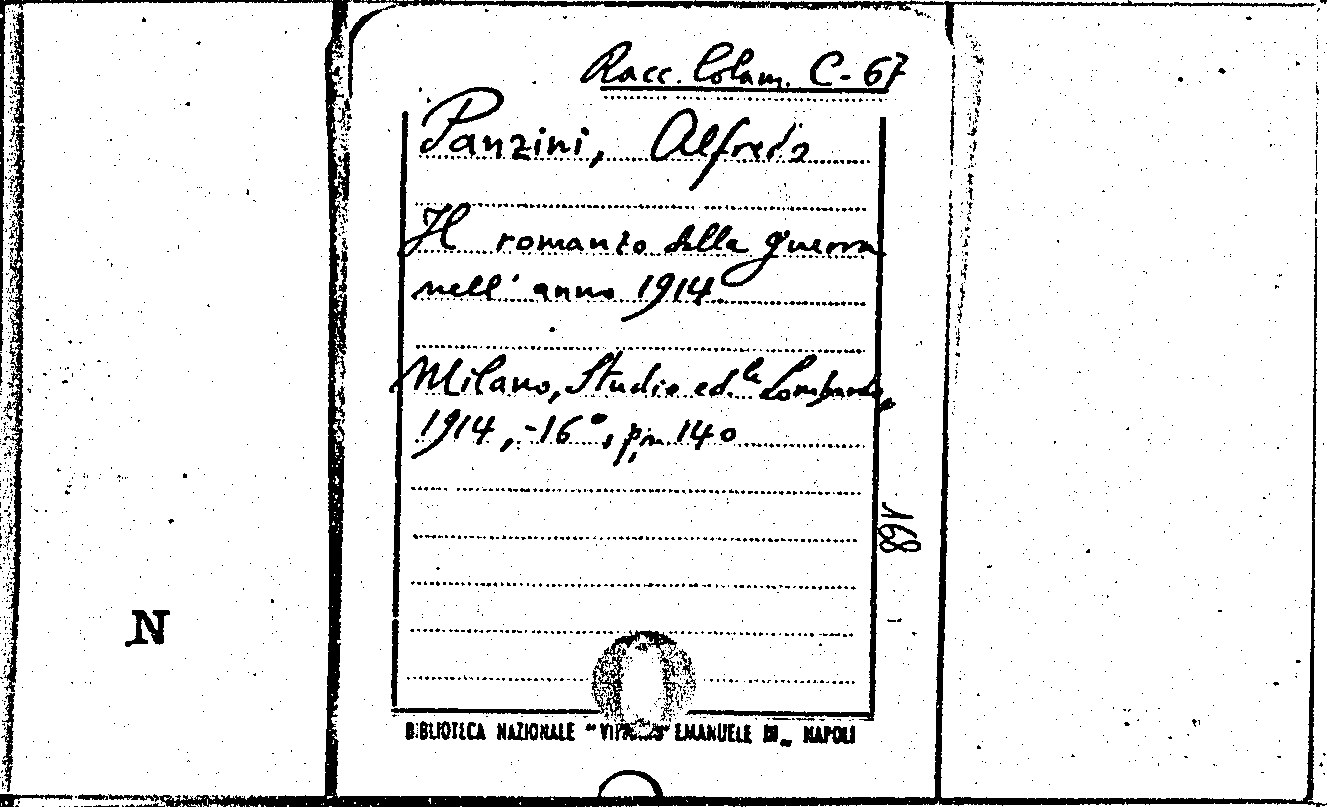 Racc. Colam. C-67
Panzini, Alfredo
Il romanzo della guerra
nell' anno 1914
Milano, Studio ed.le Lombardo,
1914, -16°, pp. 140
168
N
BIBLIOTECA NAZIONALE "VITTORIO EMANUELE III" NAPOLI